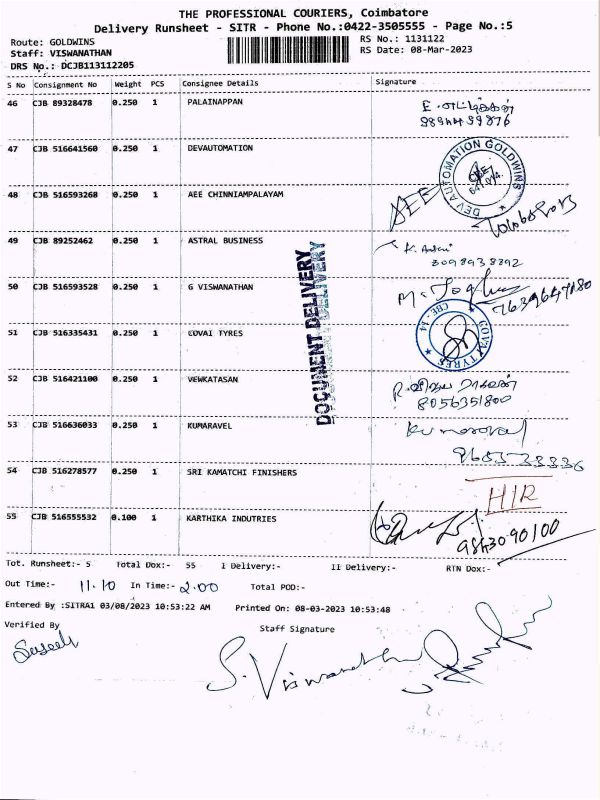 THE PROFESSIONAL COURIERS, Coimbatore
Delivery Runsheet - SITR - Phone No.:0422-3505555 - Page No.:5
Route: GOLDWINS
RS No.: 1131122
Staff: VISWANATHAN
RS Date: 08-Mar-2023
DRS No.: DCJB113112205
S No Consignment No Weight PCS Consignee Details Signature
46 CJB 89328478 0.250 1 PALAINAPPAN
47 CJB 516641560 0.250 1 DEVAUTOMATION
DEV AUTOMATION GOLDWINS
CBE
48 CJB 516593268 0.250 1 AEE CHINNIAMPALAYAM AEE
49 CJB 89252462 0.250 1 ASTRAL BUSINESS
50 CJB 516593528 0.250 1 G VISWANATHAN
7639647180
DOCUMENT DELIVERY
51 CJB 516335431 0.250 1 COVAI TYRES
COVAI TYRES CBE - 14
52 CJB 516421100 0.250 1 VEWKATASAN
8056351800
53 CJB 516636033 0.250 1 KUMARAVEL
54 CJB 516278577 0.250 1 SRI KAMATCHI FINISHERS
H/R
55 CJB 516555532 0.100 1 KARTHIKA INDUTRIES
9843090100
Tot. Runsheet:- 5 Total Dox:- 55 I Delivery:- II Delivery:- RTN Dox:-
Out Time:- 11.10 In Time:- 2.00 Total POD:-
Entered By :SITRA1 03/08/2023 10:53:22 AM Printed On: 08-03-2023 10:53:48
Verified By
Staff Signature
S. Viswanathan